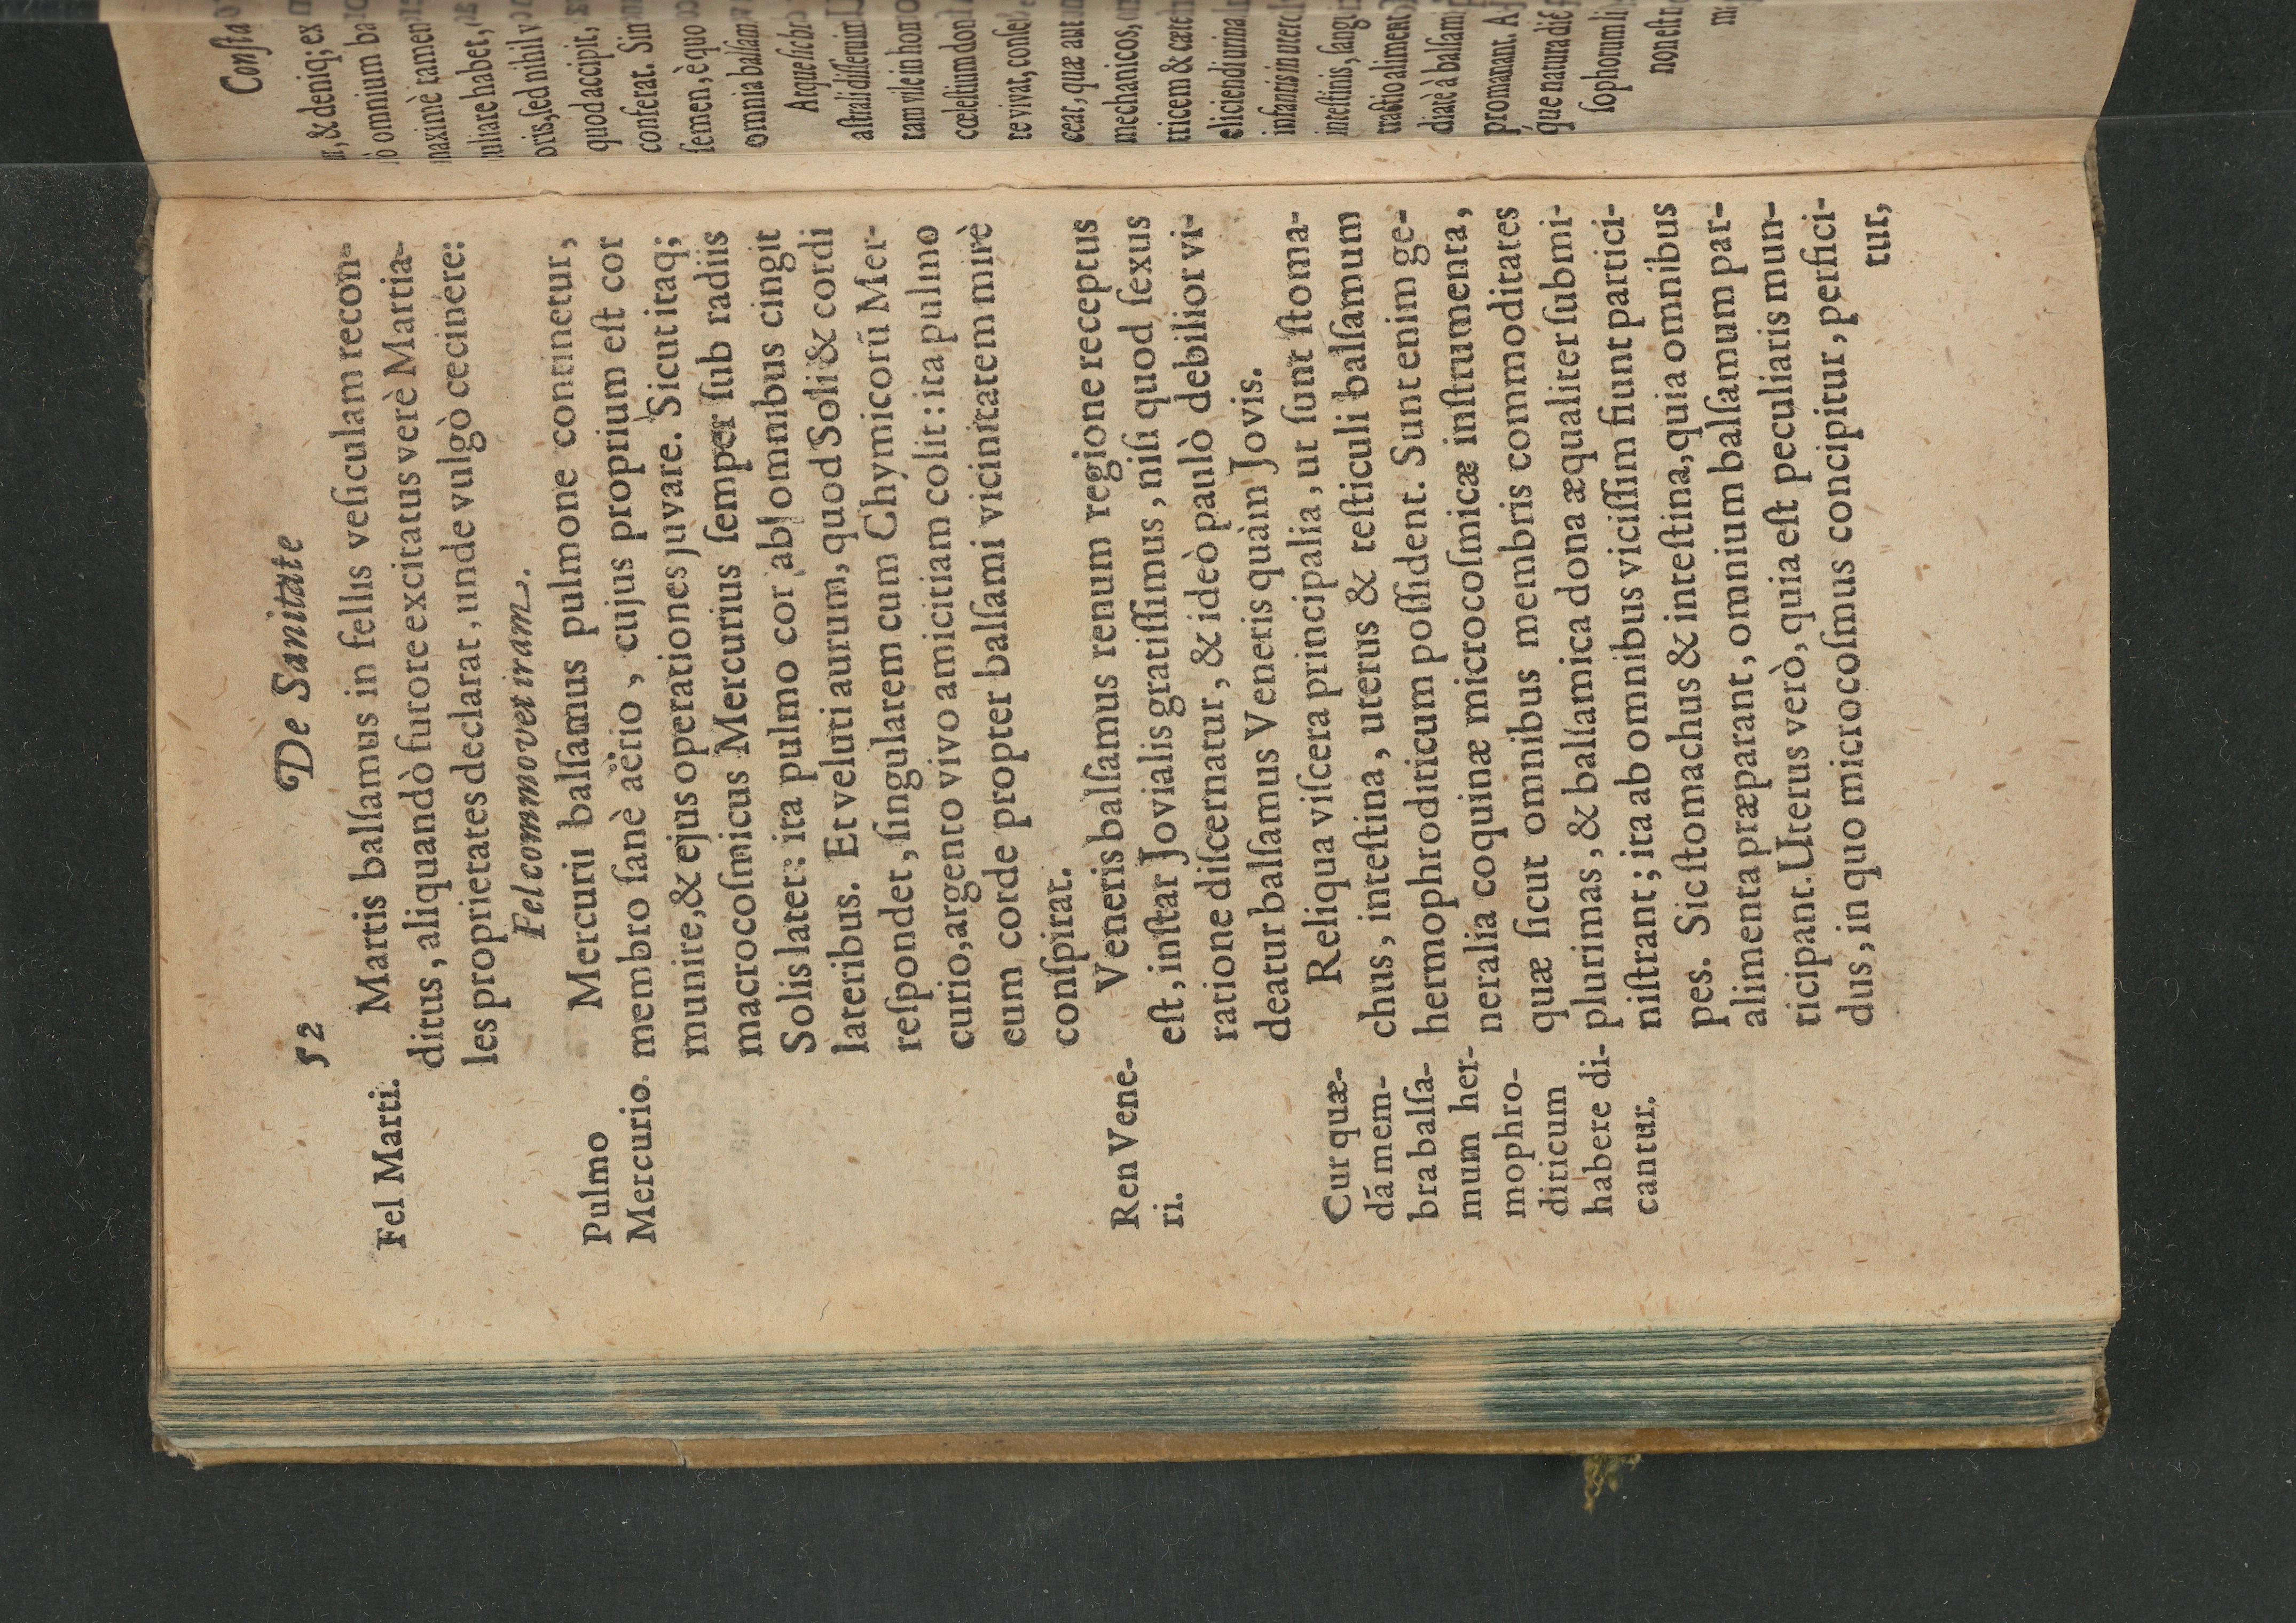 52 De Sanitate
Fel Marti.
Martis balſamus in fellis veſiculam recon-
ditus, aliquandò furore excitatus verè Martia-
les proprietates declarat, unde vulgò cecinere:
Fel commovet iram.
Pulmo
Mercurio.
Mercurii balſamus pulmone continetur,
membro ſanè aërio, cujus proprium eſt cor
munire, & ejus operationes juvare. Sicut itaq;
macrocoſmicus Mercurius ſemper ſub radiis
Solis latet: ita pulmo cor ab omnibus cingit
lateribus. Et veluti aurum, quod Soli & cordi
reſpondet, ſingularem cum Chymicorū Mer-
curio, argento vivo amicitiam colit: ita pulmo
cum corde propter balſami vicinitatem mirè
conſpirat.
Ren Vene-
ri.
Veneris balſamus renum regione receptus
eſt, inſtar Jovialis gratiſſimus, niſi quod ſexus
ratione diſcernatur, & ideò paulò debilior vi-
deatur balſamus Veneris quàm Jovis.
Cur quæ-
dā mem-
bra balſa-
mum her-
mophro-
diticum
habere di-
cantur.
Reliqua viſcera principalia, ut ſunt ſtoma-
chus, inteſtina, uterus & teſticuli balſamum
hermophroditicum poſſident. Sunt enim ge-
neralia coquinæ microcoſmicæ inſtrumenta,
quæ ſicut omnibus membris commoditates
plurimas, & balſamica dona æqualiter ſubmi-
niſtrant; ita ab omnibus viciſſim fiunt partici-
pes. Sic ſtomachus & inteſtina, quia omnibus
alimenta præparant, omnium balſamum par-
ticipant. Uterus verò, quia eſt peculiaris mun-
dus, in quo microcoſmus concipitur, perfici-
tur,
Conſta
, & deniq; ex
omnium ba
maximè tamen
uliare habet,
oris, ſed nihil
quod accipit,
conferat. Sin
ſemen, è quo
omnia balſam
Atque ſic
aſtrali diſſeruim
tam vile in hom
cœleſtium don
re vivat, conſe
ceat, quæ aut
mechanicos,
tricem & care
eliciendi urina
infantis in utero
inteſtinis, ſangui
tractio aliment
diatè à balſam
promanant. A
que natura
ſophorum li
non eſt